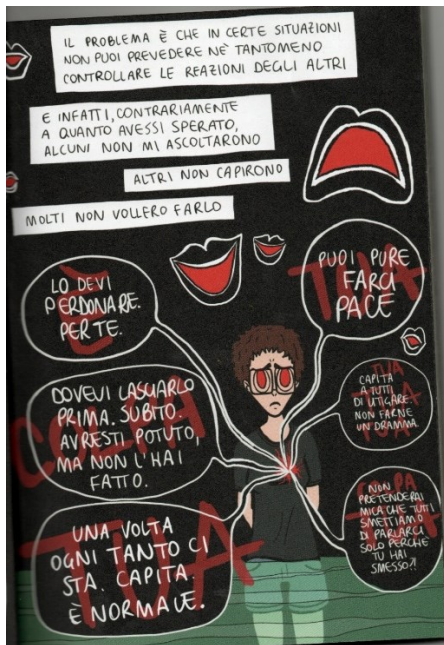 IL PROBLEMA È CHE IN CERTE SITUAZIONI
NON PUOI PREVEDERE NÈ TANTOMENO
CONTROLLARE LE REAZIONI DEGLI ALTRI
E INFATTI, CONTRARIAMENTE
A QUANTO AVESSI SPERATO,
ALCUNI NON MI ASCOLTARONO
ALTRI NON CAPIRONO
MOLTI NON VOLLERO FARLO
LO DEVI
PERDONARE.
PER TE.
È
PUOI PURE
FARCI
PACE
TUA
DOVEVI LASCIARLO
PRIMA. SUBITO.
AVRESTI POTUTO,
MA NON L'HAI
FATTO.
COLPA
CAPITA
A TUTTI
DI LITIGARE.
NON FARNE
UN DRAMMA.
TUA
TUA
TUA
UNA VOLTA
OGNI TANTO CI
STA. CAPITA.
È NORMALE.
TUA
NON
PRETENDERAI
MICA CHE TUTTI
SMETTIAMO
DI PARLARCI
SOLO PERCHÈ
TU HAI
SMESSO?!
COLPA